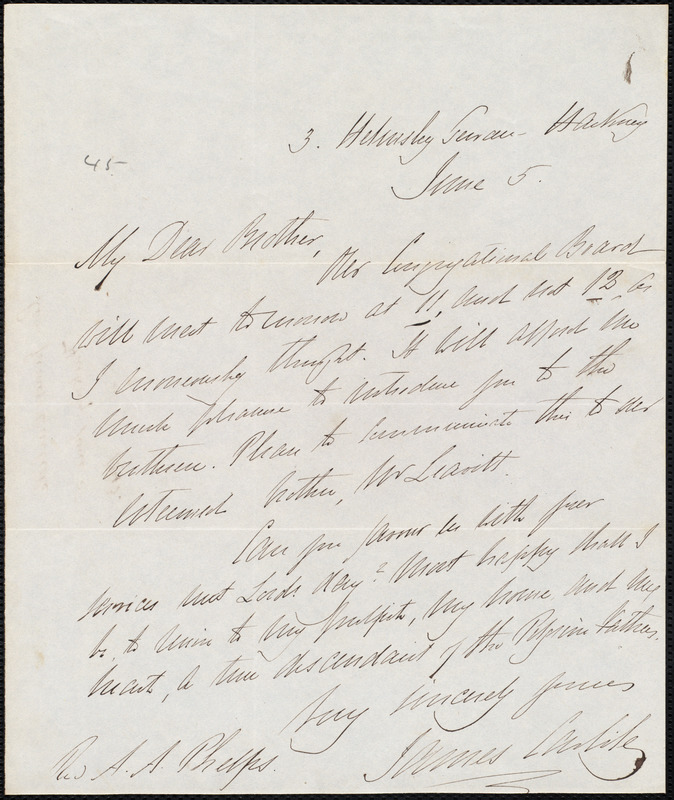 3. Helmsley Terrace - Hackney
45.
June 5.
My Dear Brother,
Our Congregational Board
will meet tomorrow at 11, and not 12 as
I erroneously thought. It will afford me
much pleasure to introduce you to the
brethren. Please to communicate this to our
esteemed brother, Mr Leavitt.
Can you favour us with your
services next Lords day? Most happy shall I
be to receive to my pulpit, my house and my
heart, a true descendant of the Pilgrim Fathers.
Very sincerely yours
James Carlile
Rev A. A. Phelps.